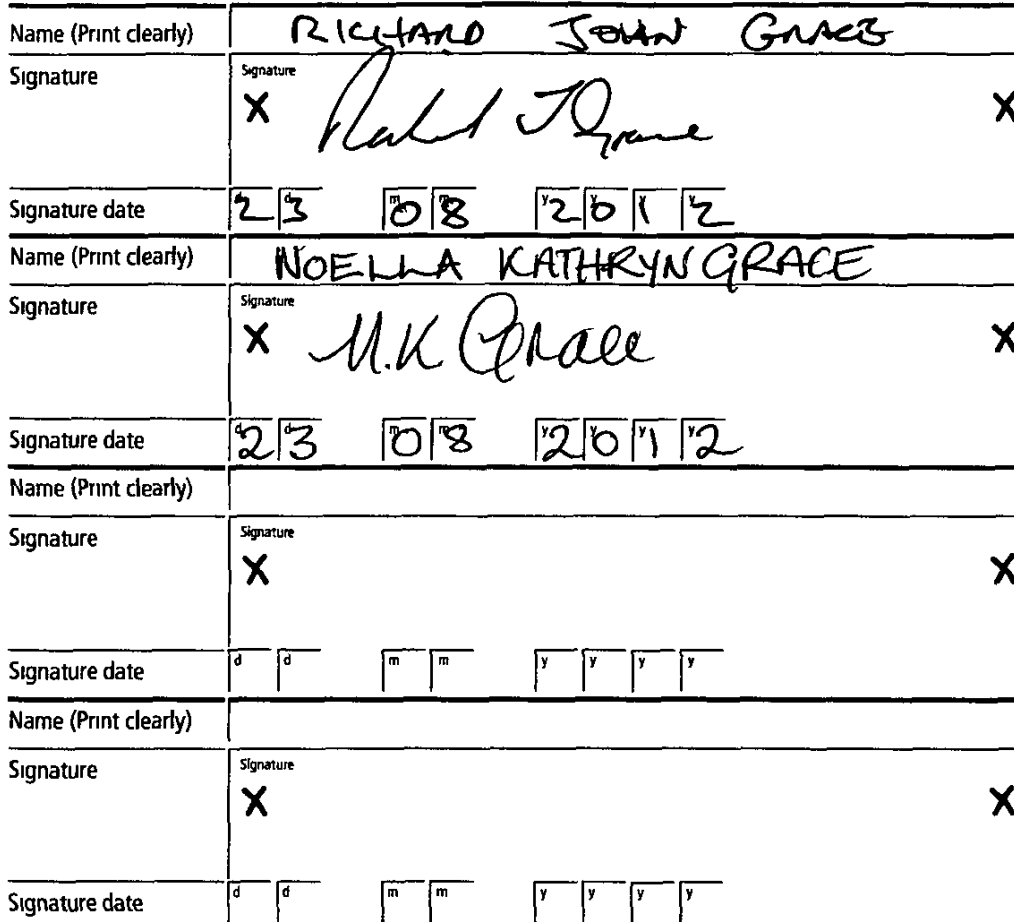 Name (Print clearly) RICHARD JOHN GRACE
Signature Signature
X Richard J Grace X
Signature date d d m m y y y y 23 08 2012
Name (Print clearly) NOELLA KATHRYN GRACE
Signature Signature
X N.K Grace X
Signature date d d m m y y y y 23 08 2012
Name (Print clearly)
Signature Signature
X X
Signature date d d m m y y y y
Name (Print clearly)
Signature Signature
X X
Signature date d d m m y y y y